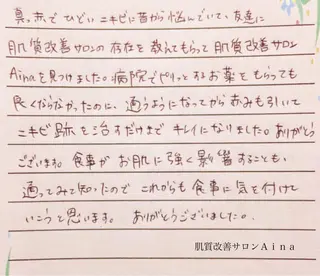 真っ赤でひどいニキビに昔から悩んでいて、友達に
肌質改善サロンの存在を教えてもらって肌質改善サロン
Ainaを見つけました。病院でピリッとするお薬をもらっても
良くならなかったのに、通うようになってから赤みも引いて
ニキビ跡を治すだけまでキレイになりました。ありがとう
ございます。食事がお肌に強く影響することも、
通ってみて知ったのでこれからも食事に気を付けて
いこうと思います。ありがとうございました。
肌質改善サロンAina